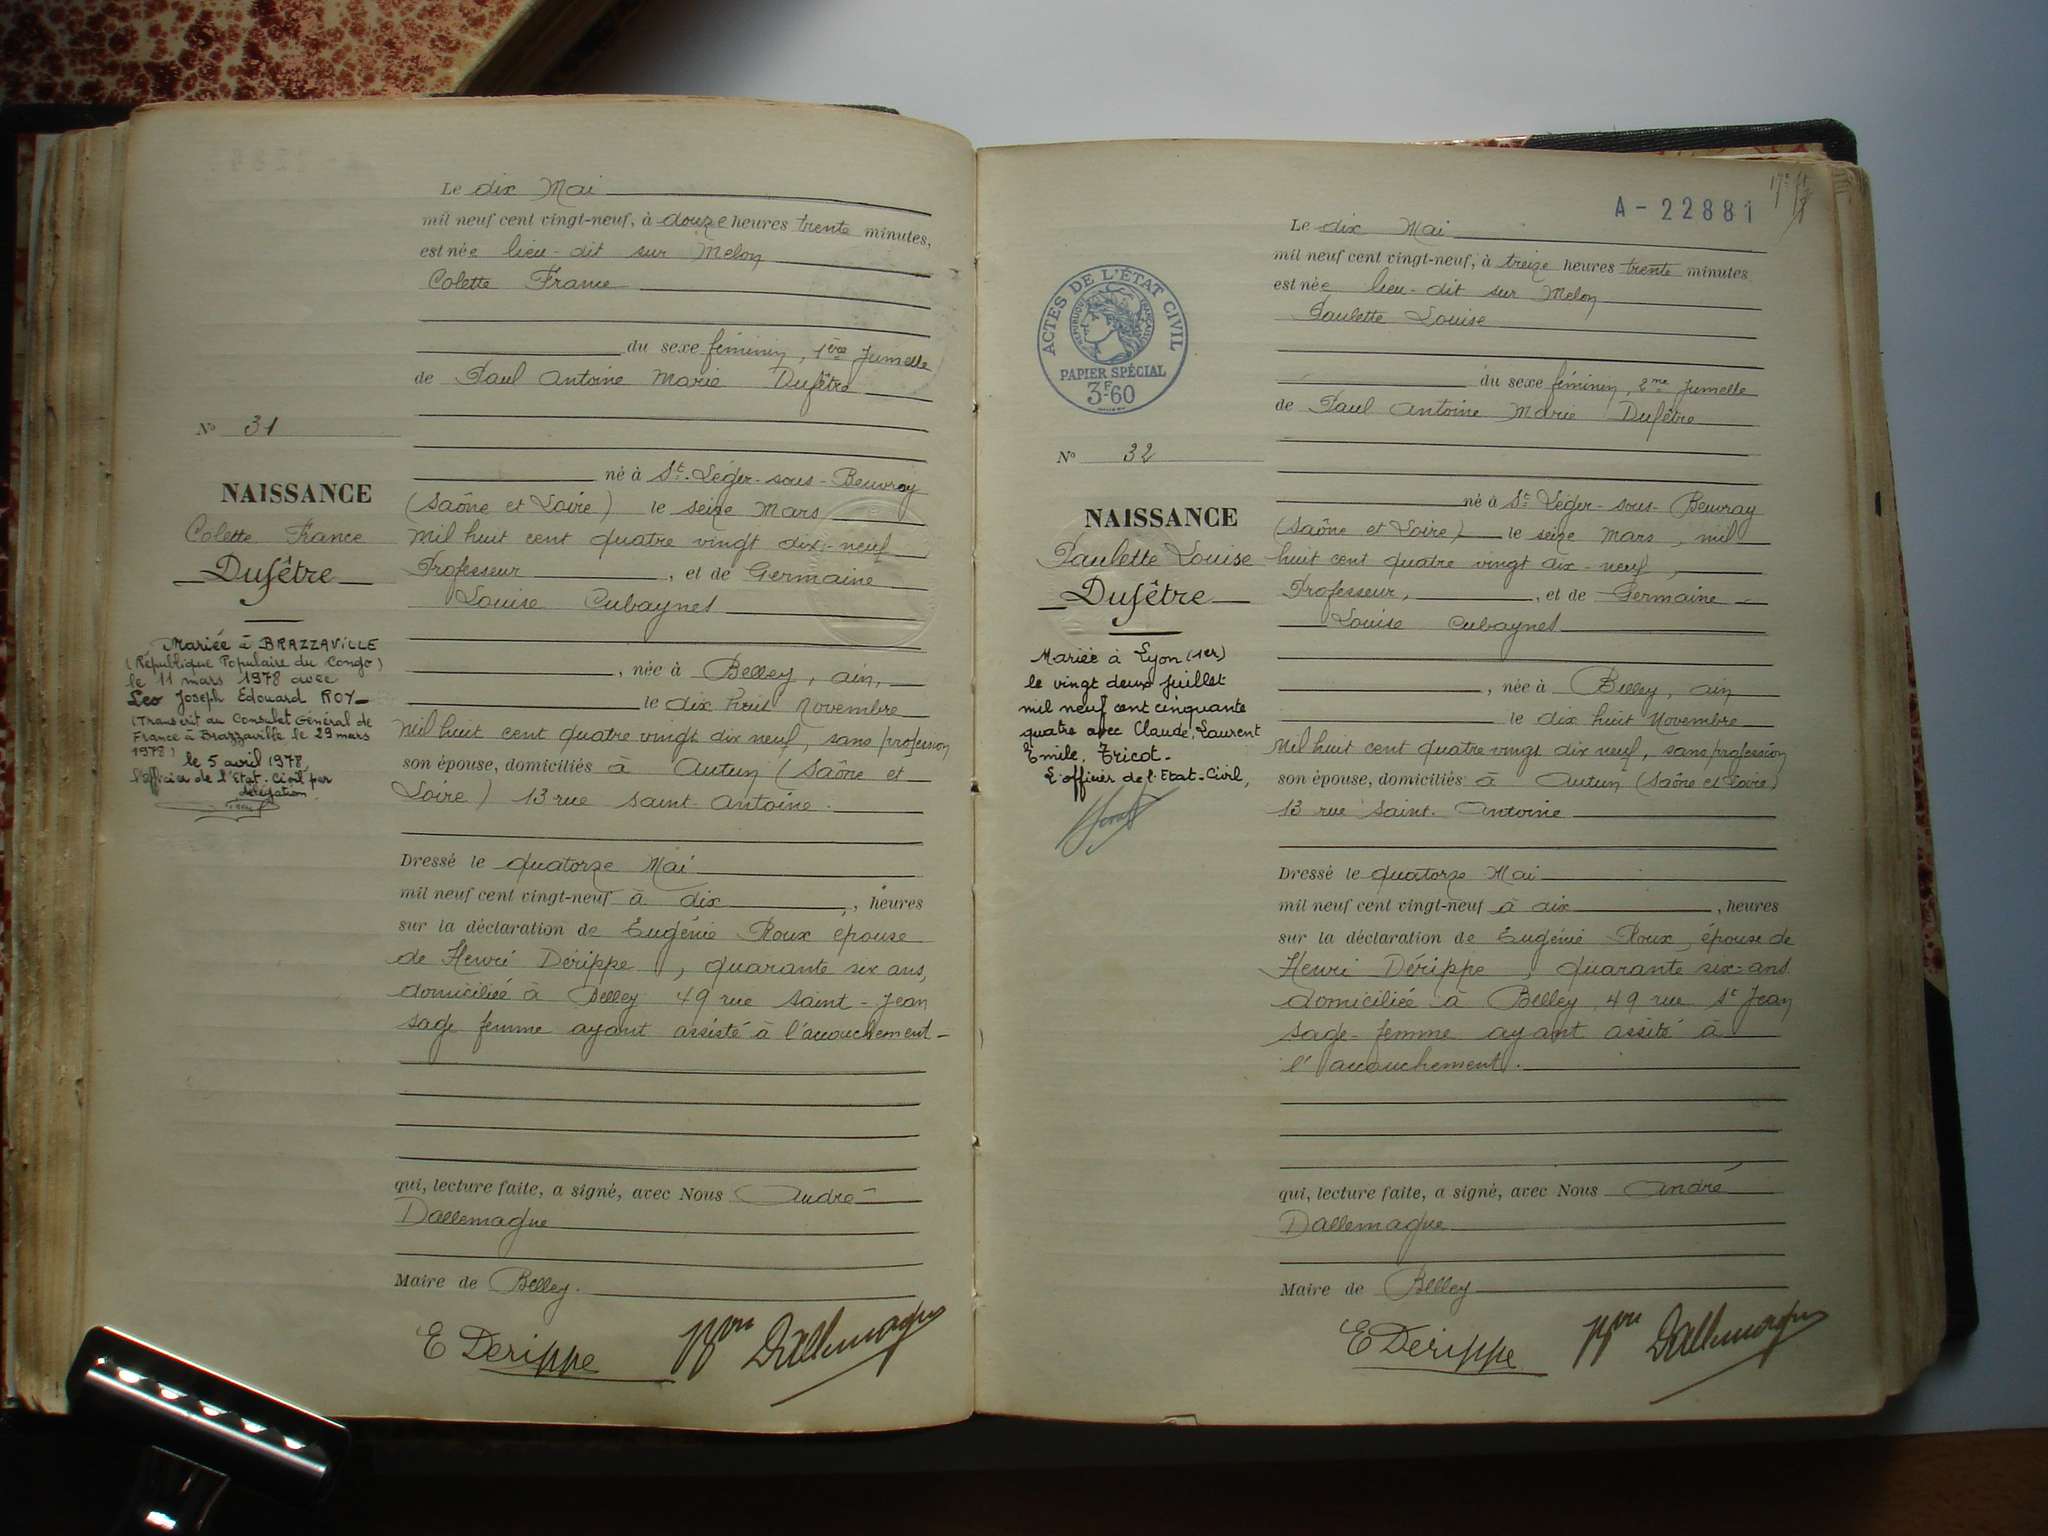 Le dix Mai
mil neuf cent vingt-neuf, à douze heures trente minutes,
est née lieu-dit sur Melon
Colette France
du sexe féminin, 1ère Jumelle
de Paul Antoine Marie Dufêtre
né à St-Léger-sous-Beuvray
(Saône et Loire) le seize Mars
mil huit cent quatre vingt dix-neuf
Professeur, et de Germaine
Louise Cubaynes
, née à Belley, ain,
le dix huit Novembre
mil huit cent quatre vingt dix neuf, sans profession
son épouse, domiciliés à Autun (Saône et
Loire) 13 rue Saint-Antoine.
Dressé le quatorze Mai
mil neuf cent vingt-neuf à dix, heures
sur la déclaration de Eugénie Roux épouse
de Henri Dérippe, quarante six ans,
domiciliée à Belley 49 rue Saint-Jean
sage femme ayant assisté à l'accouchement-
qui, lecture faite, a signé, avec Nous André
Dallemagne
Maire de Belley.
E Derippe Bon Dallemagne
No 31
NAISSANCE
Colette France
Dufêtre
Mariée à BRAZZAVILLE
(République Populaire du Congo)
le 11 mars 1978 avec
Leo Joseph Edouard ROY-
(Transcrit au Consulat Général de
France à Brazzaville le 29 mars
1978)
le 5 avril 1978,
l'officier de l'Etat-Civil par
délégation
A-22881
Le dix Mai
mil neuf cent vingt-neuf, à treize heures trente minutes
est née lieu-dit sur Melon
Paulette Louise
du sexe féminin, 2me Jumelle
de Paul Antoine Marie Dufêtre
né à St Léger-sous-Beuvray
(Saône et Loire) le seize Mars, mil
huit cent quatre vingt dix-neuf,
Professeur, , et de Germaine
Louise Cubaynes
, née à Belley, ain
le dix huit Novembre
mil huit cent quatre vingt dix neuf, sans profession
son épouse, domiciliés à Autun (Saône et Loire)
13 rue Saint-Antoine
Dressé le quatorze Mai
mil neuf cent vingt-neuf à dix, heures
sur la déclaration de Eugénie Roux, épouse de
Henri Dérippe, quarante six-ans
domiciliée à Belley, 49 rue St Jean
sage-femme ayant assité à
l'accouchement.
qui, lecture faite, a signé, avec Nous André
Dallemagne
Maire de Belley
E Derippe Bon Dallemagne
ACTES DE L'ÉTAT CIVIL
RÉPUBLIQUE FRANÇAISE
PAPIER SPÉCIAL
3F60
No 32
NAISSANCE
Paulette Louise
Dufêtre
Mariée à Lyon (1er)
le vingt deux juillet
mil neuf cent cinquante
quatre avec Claude, Laurent
Emile, Tricot-
L'officier de l'Etat-Civil,